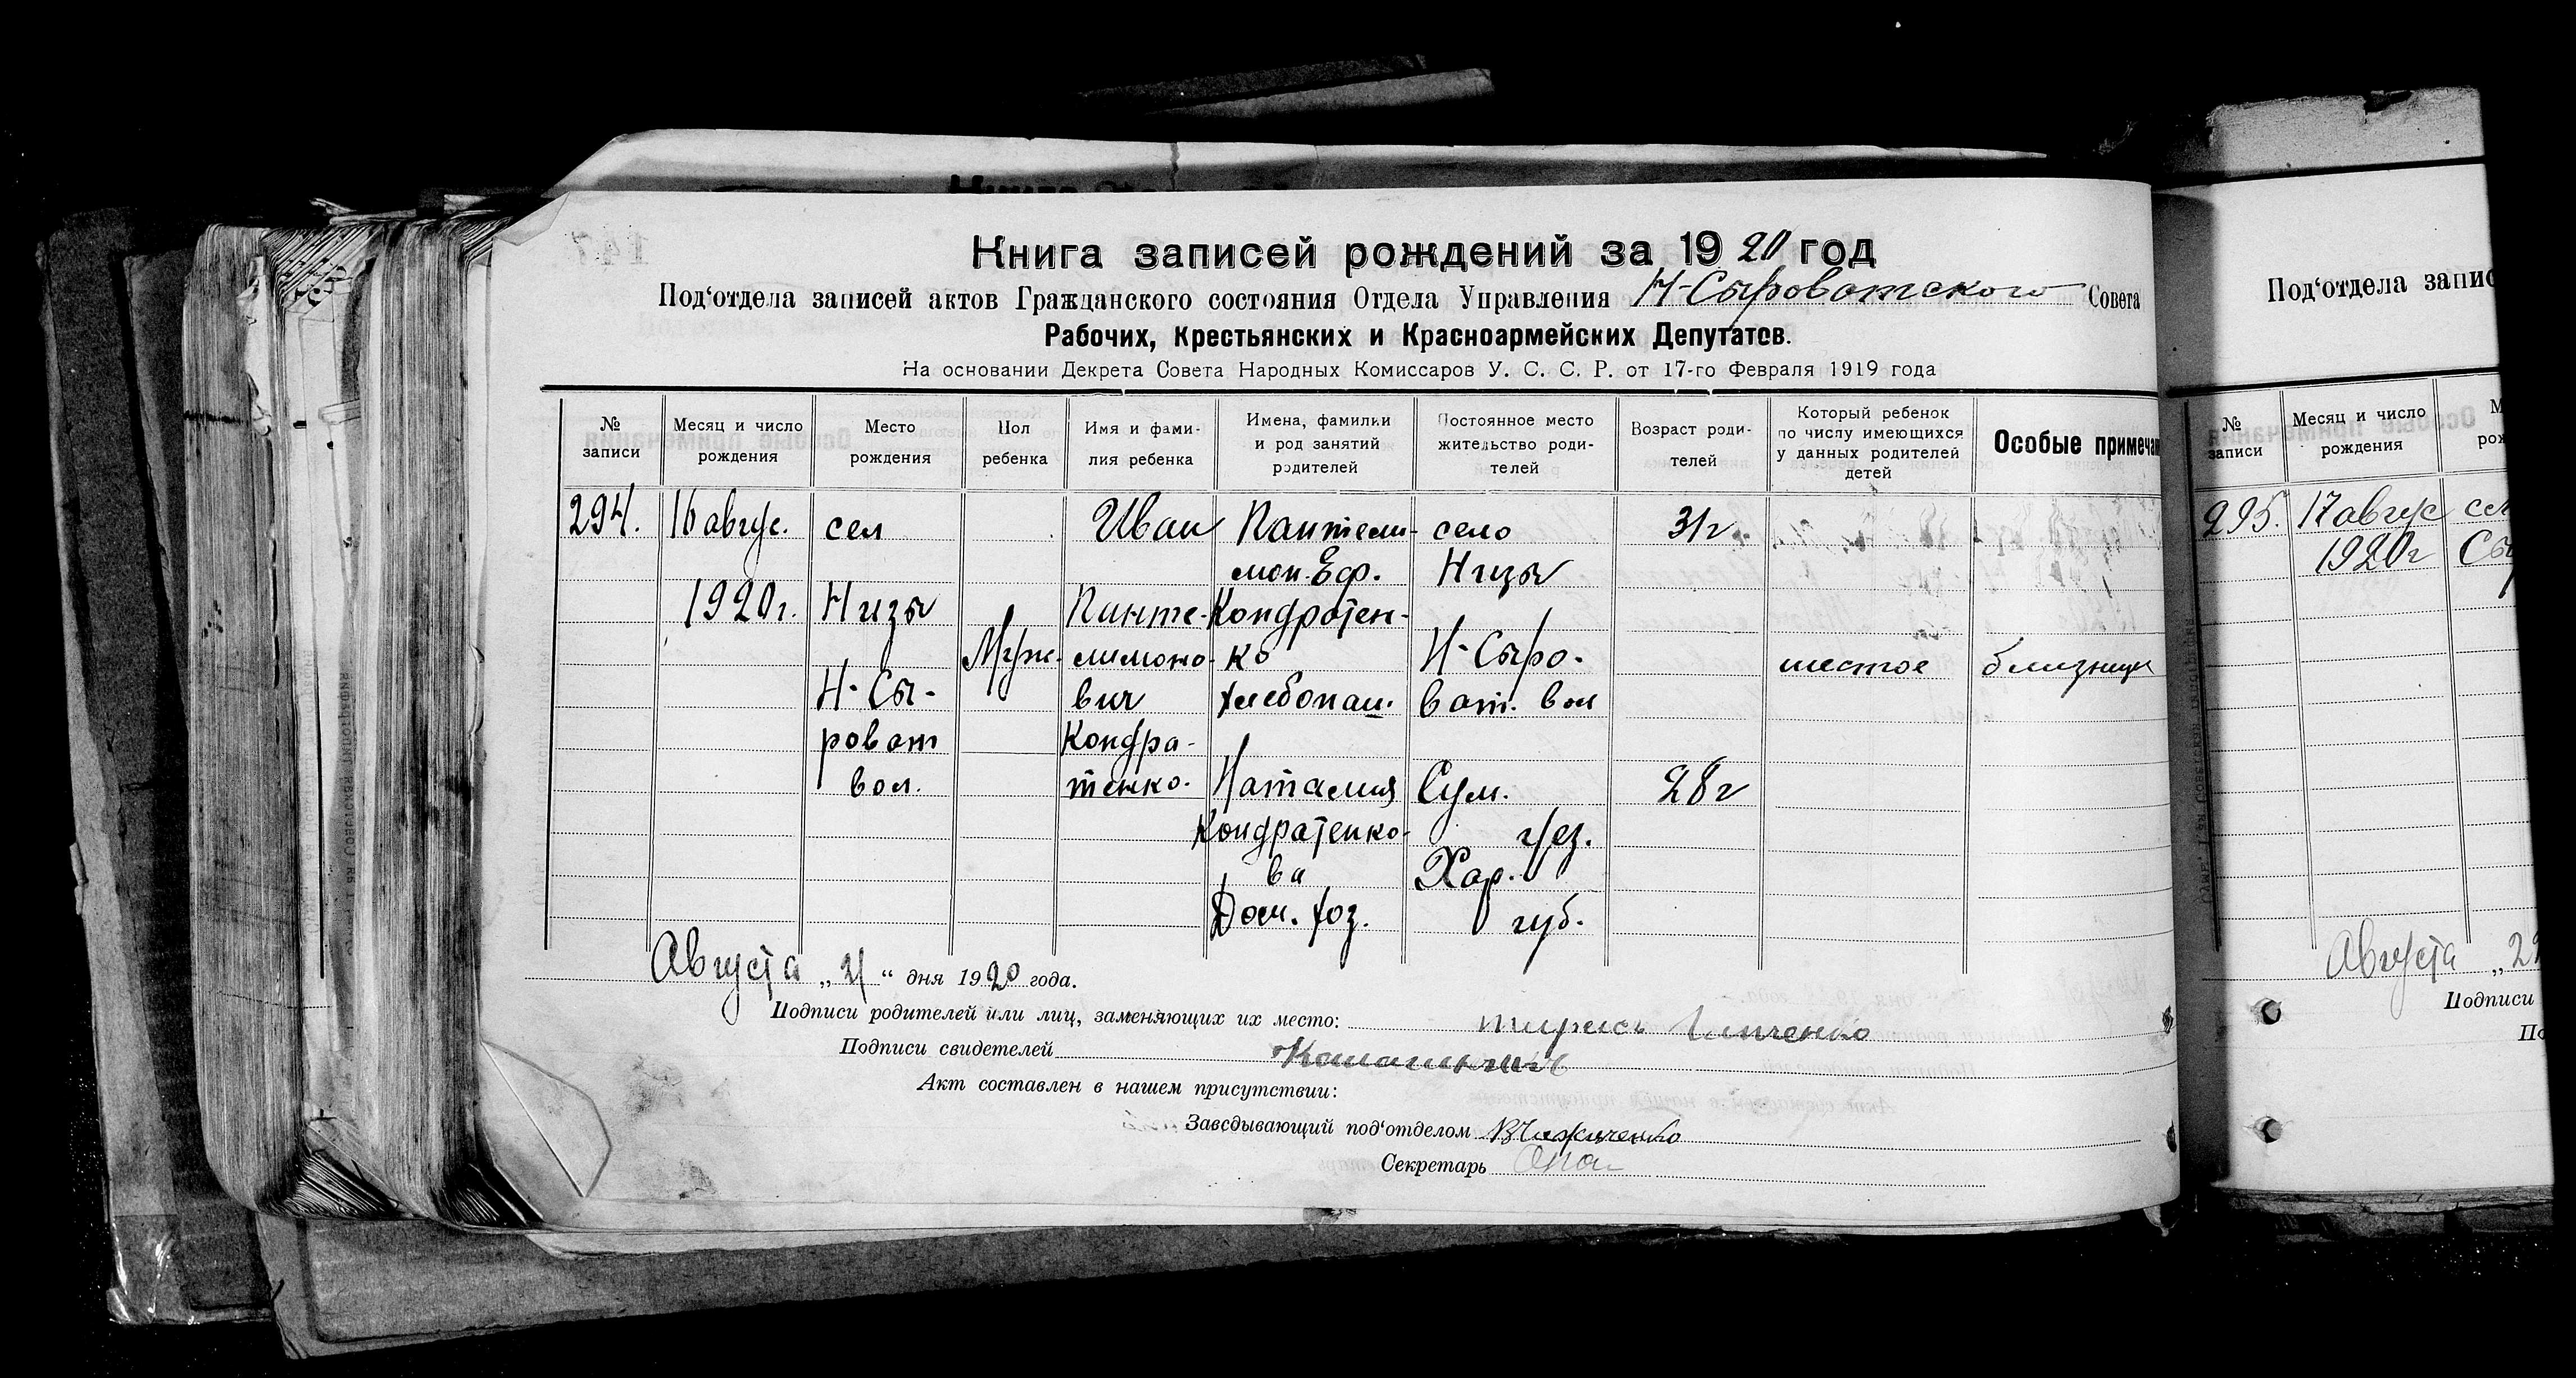 Книга записей рождений за 1920 год
Под‘отдела записей актов Гражданского состояния Отдела Управления Н-Сыроватского Совета
Рабочих, Крестьянских и Красноармейских Депутатов.
На основании Декрета Совета Народных Комиссаров У. С. С. Р. от 17-го Февраля 1919 года
№ записи
Месяц и число рождения
Место рождения
Пол ребенка
Имя и фами-
лия ребенка
Имена, фамилии
и род занятий
родителей
Постоянное место
жительство роди-
телей
Возраст роди-
телей
Который ребенок
по числу имеющихся
у данных родителей
детей
Особые примечан
294.
16 авгус.
1920г.
сел
Низы
Н-Сы-
роват
вол.
Муж.
Иван
Панте-
лимоно-
вич
Кондра-
тенко.
Пантели-
мон Еф.
Кондратен-
ко
хлебопаш.
Наталия
Кондратенко-
ва
Дом. хоз.
село
Низы
Н-Сыро-
ват. вол
Сум.
уез.
Хар.
губ.
31г.
28г
шестое
близнецы
Августа „21“ дня 1920 года.
Подписи родителей или лиц, заменяющих их место:
Подписи свидетелей
Акт составлен в нашем присутствии:
Заведывающий под‘отделом
Секретарь
Под‘отдела запис
№ записи
Месяц и число
рождения
М
рож
295.
17 авгус
1920г
сел
Сы
Августа „22
Подписи
По
147